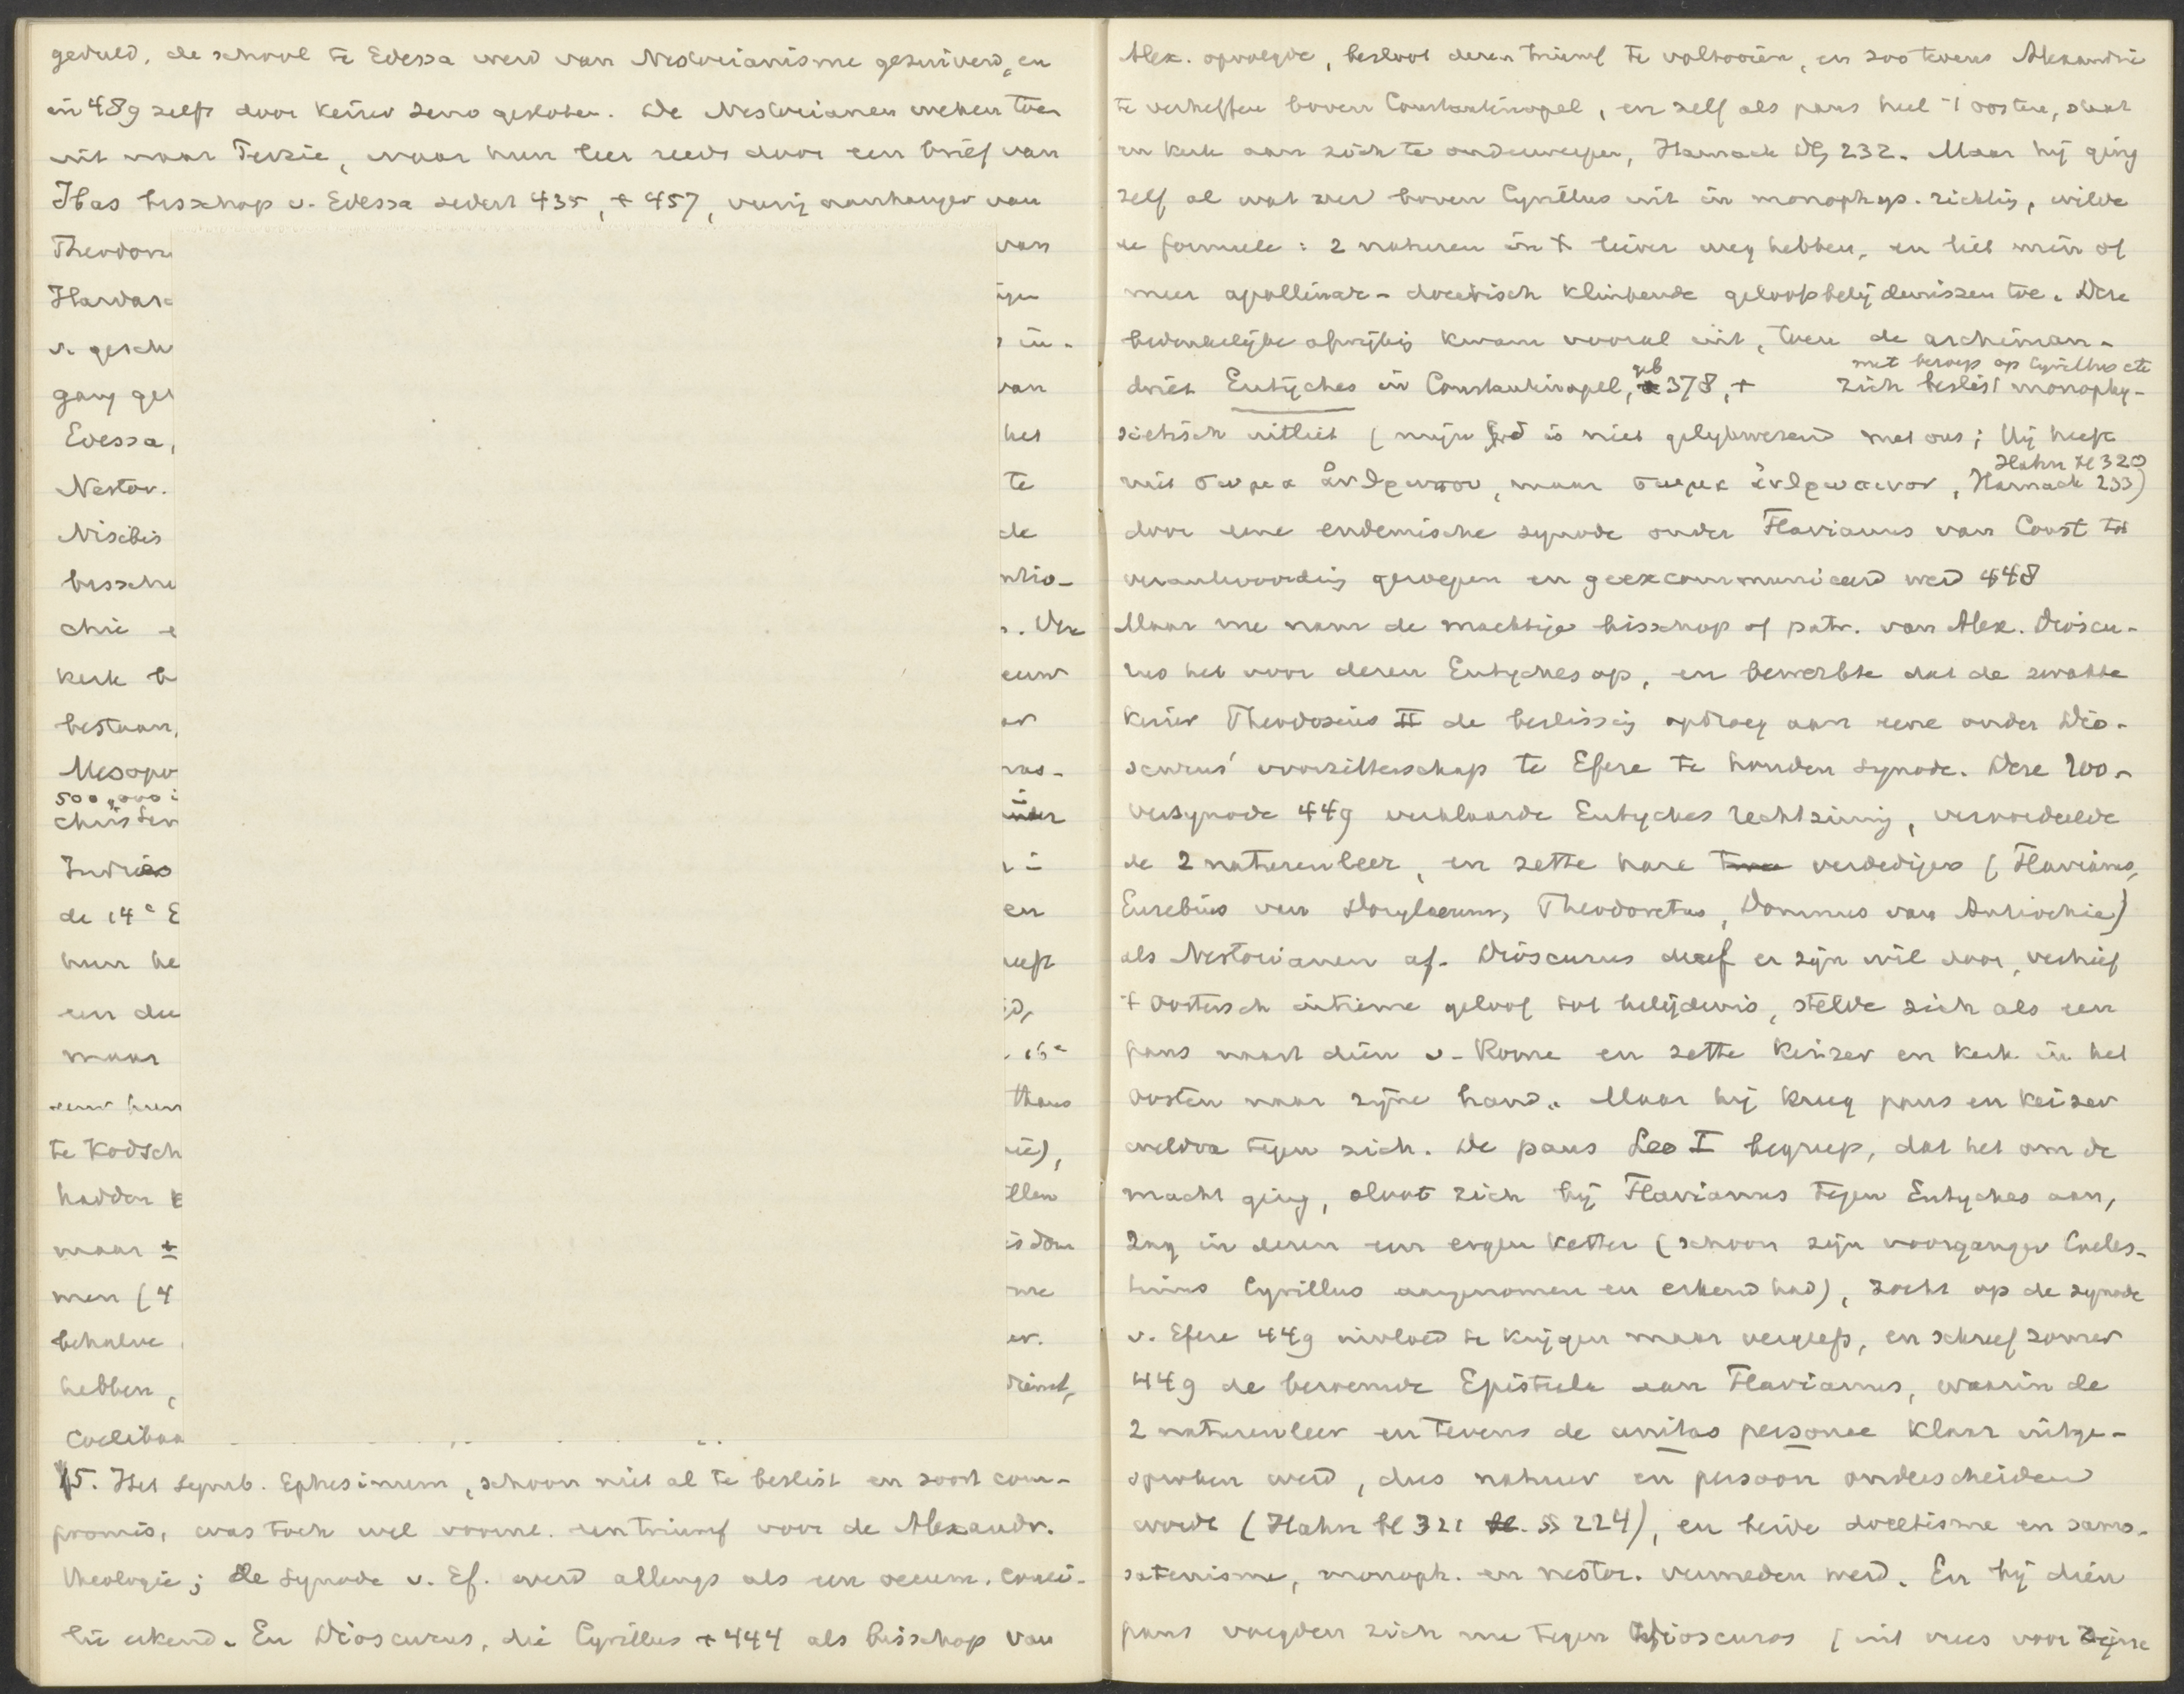 geduld, de school te Edessa werd van Nestorianisme gezuiverd, en
in 489 zelfs door keizer Zeno gesloten. De Nestorianen weken toen
uit naar Perzie, waar hun leer reeds door een brief van
Ibas bisschop v. Edessa sedert 435, + 457, vurig aanhanger van
Theodor
van
Hardas
v. gesch
in-
gang ge
van
Edessa,
het
Nestor.
te
Nisibis
de
bissch
ntio-
chie
. Deze
kerk b
eeuw
bestaan,
Mesopo
500,000
christen
Indiës
de 14e E
en
hun he
een du
maar
16e
eeuw hun
thans
te Kodsch
hadden
llen
maar ±
isdom
men (4
behalve
er.
hebben,
dienst,
Coelibaa
15. Het Symb. Ephesinum, schoon niet al te beslist en soort com-
promis, was toch wel voorne. een triumf voor de Alexandr.
theologie; de Synode v. Ef. werd allengs als een oecum. conci-
lie erkend. En Dioscurus, die Cyrillus + 444 als bisschop van
Alex. opvolgde, besloot dezen triumf te voltooien, en zoo tevens Alexandrië
te verheffen boven Constantinopel, en zelf als paus heel 't oosten, staat
en kerk aan zich te onderwerpen, Harnack II, 232. Maar hij ging
zelf al wat verder boven Cyrillus uit in monophys. richting, wilde
de formule: 2 naturen in X liever weg hebben, en liet min of
meer apollinar-docetisch klinkende geloofsbelijdenissen toe. Deze
bedenkelijke afwijking kwam vooral uit, toen de archiman-
met beroep op Cyrillus etc
driet Eutyches in Constantinopel, geb 378, + zich beslist monophy-
sietisch uitliet (mijn God is niet gelijkwezend met ons; Hij heeft
Hahn bl 320
niet σωμα ἀνθρωπου, maar σωμα ἀνθρωπινον, Harnack 233)
door eene endemische synode onder Flavianus van Const tot
verantwoording geroepen en geexcommuniceerd werd 448
Maar nu nam de machtige bisschop of patr. van Alex. Dioscu-
rus het voor dezen Eutyches op, en bewerkte dat de zwakke
keizer Theodosius II de beslissing opdroeg aan eene onder Dio-
scurus' voorzitterschap te Efeze te houden synode. Deze roo-
versynode 449 verklaarde Eutyches rechtzinnig, veroordeelde
de 2 naturenleer, en zette hare verdedigers (Flavianus,
Eusebius van Dorylaeum, Theodoretus, Domnus van Antiochie)
als Nestorianen af. Dioscurus dreef er zijn wil door, verhief
't Oostersch intieme geloof tot belijdenis, stelde zich als een
paus naast dien v. Rome en zette keizer en kerk in het
Oosten naar zijne hand. Maar hij kreeg paus en keizer
weldra tegen zich. De paus Leo I begreep, dat het om de
macht ging, sloot zich bij Flavianus tegen Eutyches aan,
zag in dezen een ergen ketter (schoon zijn voorganger Coeles-
tinus Cyrillus aangenomen en erkend had), zocht op de synode
v. Efeze 449 invloed te krijgen maar vergeefs, en schreef zomer
449 de beroemde Epistula aan Flavianus, waarin de
2 naturenleer en tevens de unitas personae klaar uitge-
sproken werd, dus natuur en persoon onderscheiden
werd (Hahn bl 321 §§ 224), en beide docetisme en samo-
satenisme, monoph. en nestor. vermeden werd. En bij dien
paus voegden zich nu tegen Dioscuros (uit vrees voor zijne